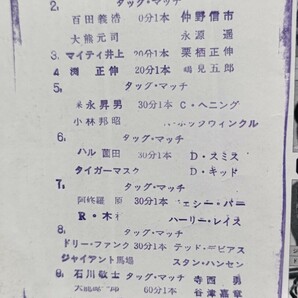 2. タッグ・マッチ
百田義浩 0分1本 仲野信市
大熊元司 永源遥
3. マイティ井上 20分1本 栗栖正伸
4. 渕正伸 20分1本 鶴見五郎
5. タッグ・マッチ
永昇男 30分1本 C・ヘニング
小林邦昭 ボックウィンクル
6. タッグ・マッチ
ハル薗田 30分1本 D・スミス
タイガーマスク D・キッド
7. タッグ・マッチ
阿修羅原 30分1本 ェシー・バー
R・木村 ハーリー・レイス
8. タッグ・マッチ
ドリー・ファンク 30分1本 テッド・デビアス
ジャイアント馬場 スタン・ハンセン
9. 石川敬士 タッグ・マッチ 寺西勇
天龍源一郎 60分1本 谷津嘉章